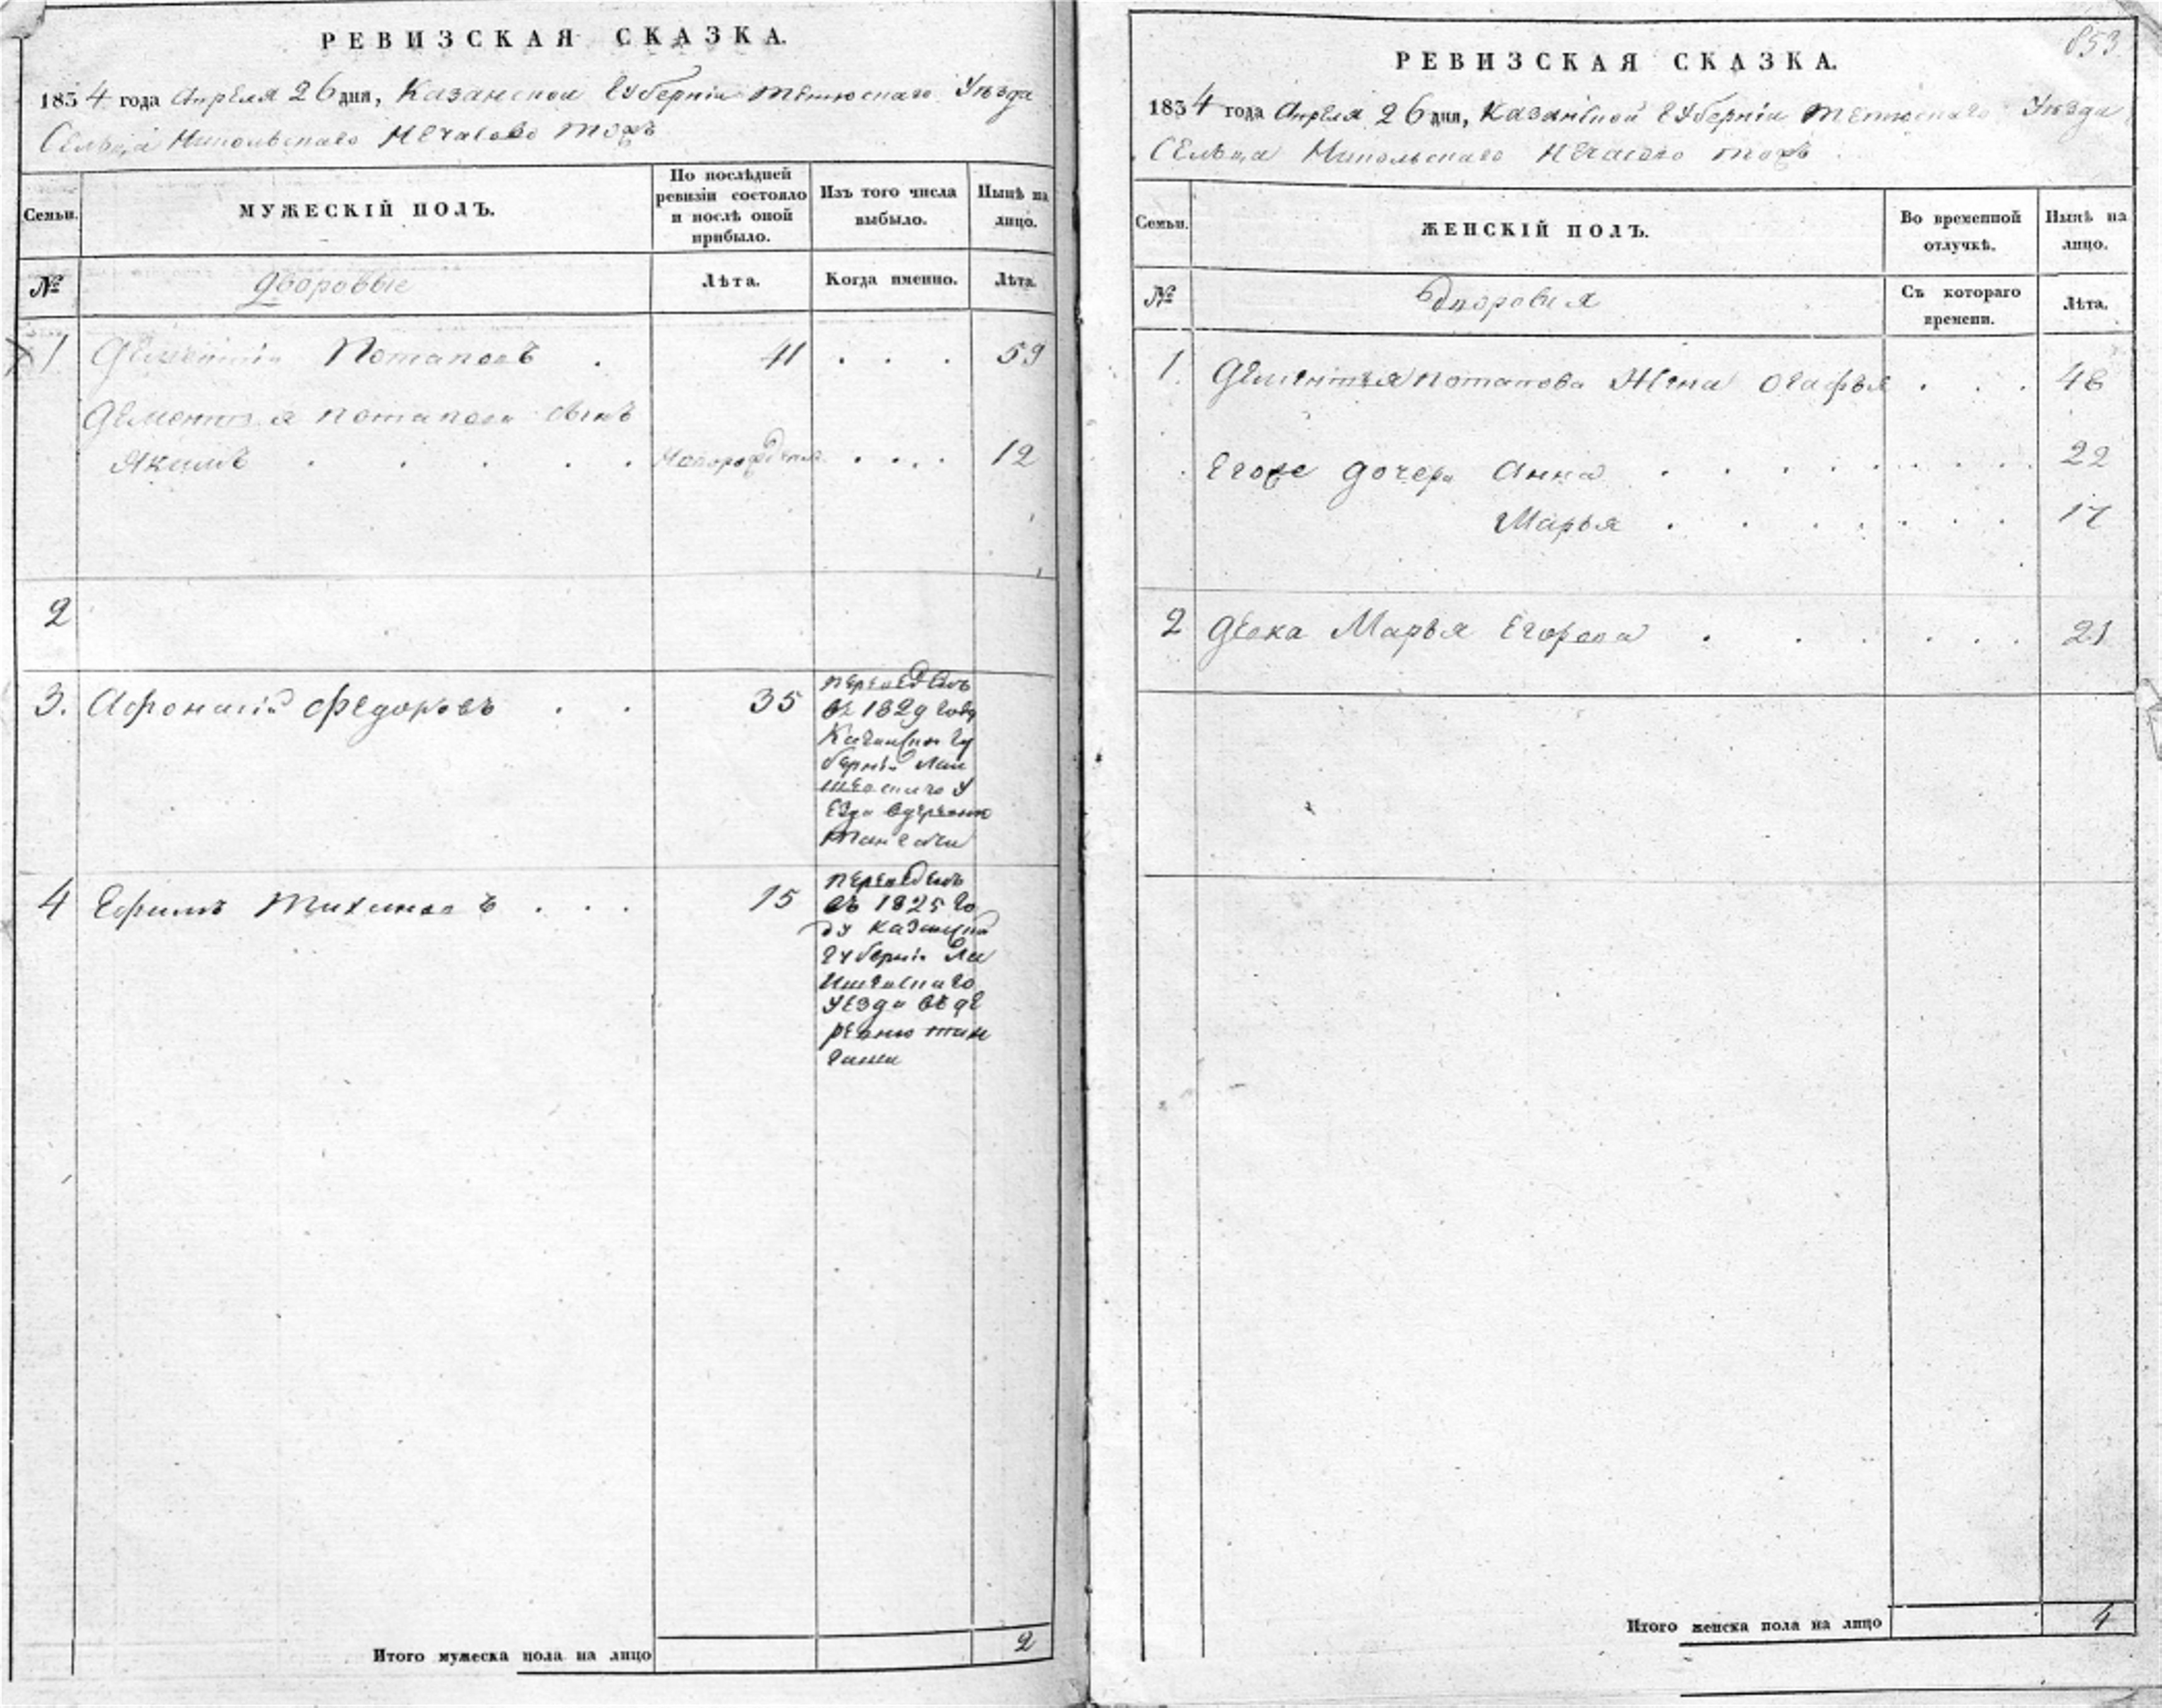 РЕВИЗСКАЯ СКАЗКА.
1834 года Апреля 26 дня, Казанской Губернiи Тетюскаго Уъзда
Сельца Никольскаго Нечасово тожъ
Семьи.
МУЖЕСКIЙ ПОЛЪ.
По послѣдней ревизiи состояло и послѣ оной прибыло.
Изъ того числа выбыло.
Нынѣ на лицо.
№
Дворовые
Лѣта.
Когда именно.
Лѣта.
1 Дементiй Потаповъ . 41 . . . 59
Дементья Потапова сынъ
Якимъ . . . . . Новорожденъ . . . . 12
2
3. Афонасiй Федоровъ . . 35 переведенъ
въ 1829 году
Казанской Гу
бернiи Лаи
шевскаго У
езда вдеревню
4 Ефимъ Тихоновъ . . . 15 переведенъ
въ 1825 го
ду Казанской
Губернiи Ла
ишевскаго
Уезда въ де
ревню
Итого мужеска пола на лицо 2
853
РЕВИЗСКАЯ СКАЗКА.
1834 года Апреля 26 дня, Казанской Губернiи Тетюскаго Уъзда
Сельца Никольскаго Нечасово тожъ
Семьи.
ЖЕНСКIЙ ПОЛЪ.
Во временной отлучкѣ.
Нынѣ на лицо.
№
Дворовыя
Съ котораго времени.
Лѣта.
1. Дементья Потапова Жена Огафья . . . 48
Егоже дочери Анна . . . . . . . . . . 22
Марья . . . . . . . . 17
2 Девка Марья Егорова . . . . . . 21
Итого женска пола на лицо 4